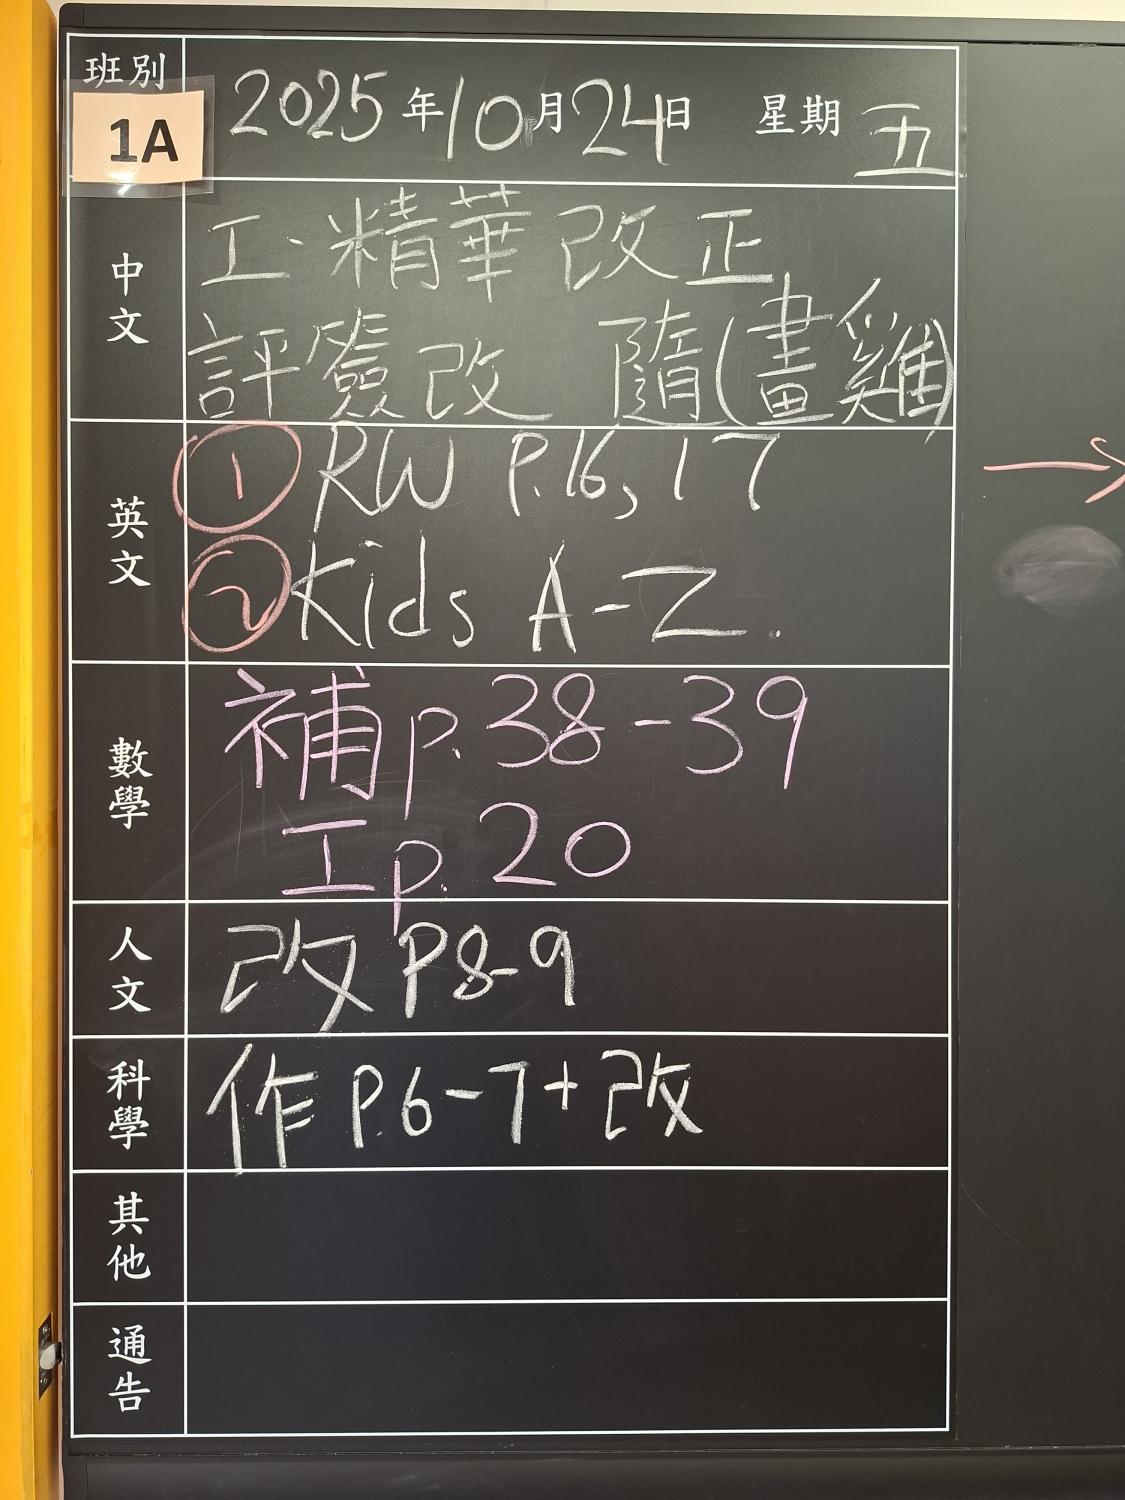 班別
1A
2025年10月24日 星期 五
中文
工、精華改正
評簽改 隨(畫雞)
英文
① RW P.16, 17
② Kids A-Z.
數學
補p.38-39
工p.20
人文
改P8-9
科學
作P.6-7+改
其他
通告